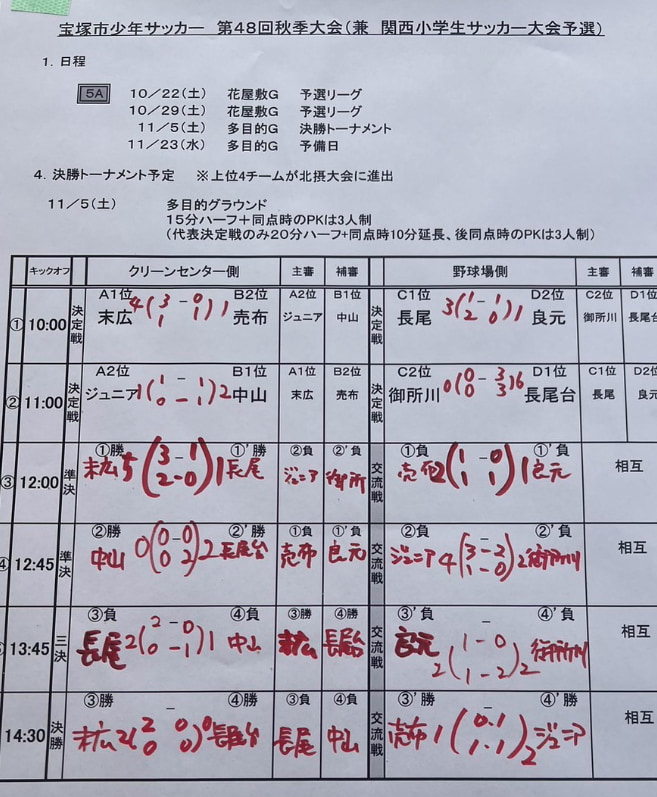 宝塚市少年サッカー 第48回秋季大会(兼 関西小学生サッカー大会予選)
1. 日程
5A 10/22(土) 花屋敷G 予選リーグ
10/29(土) 花屋敷G 予選リーグ
11/5(土) 多目的G 決勝トーナメント
11/23(水) 多目的G 予備日
4. 決勝トーナメント予定 ※上位4チームが北摂大会に進出
11/5(土) 多目的グラウンド
15分ハーフ+同点時のPKは3人制
(代表決定戦のみ20分ハーフ+同点時10分延長、後同点時のPKは3人制)
キックオフ クリーンセンター側 主審 補審 野球場側 主審 補審
A1位 B2位 A2位 B1位 C1位 D2位 C2位 D1位
① 10:00 決定戦 末広 4 (3 - 0 1 1) 1 売布 ジュニア 中山 決定戦 長尾 3 (1 - 1 2 0) 1 良元 御所川 長尾台
A2位 B1位 A1位 B2位 C2位 D1位 C1位 D2位
② 11:00 決定戦 ジュニア 1 (1 - 1 0 - 1) 2 中山 末広 売布 決定戦 御所川 0 (0 - 3 0 3) 6 長尾台 長尾 良元
①勝 ①'勝 ②負 ②'負 ①負 ①'負
③ 12:00 準決 末広 5 (3 - 1 2 - 0) 1 長尾 ジュニア 御所 交流戦 売布 2 (1 - 0 1 1) 1 良元 相互
②勝 ②'勝 ①負 ①'負 ②負 ②'負
④ 12:45 準決 中山 0 (0 - 0 0 2) 2 長尾台 売布 良元 交流戦 ジュニア 4 (3 - 2 1 - 0) 2 御所川 相互
③負 ④負 ③勝 ④勝 ③'負 ④'負
13:45 三決 長尾 2 (2 - 0 0 - 1) 1 中山 末広 長尾台 交流戦 良元 2 (1 - 0 1 - 2) 2 御所川 相互
③勝 ④勝 ③負 ④負 ③'勝 ④'勝
14:30 決勝 末広 2 (2 0 0 0) 0 長尾台 長尾 中山 交流戦 売布 1 (0 - 1 1 - 1) 2 ジュニア 相互